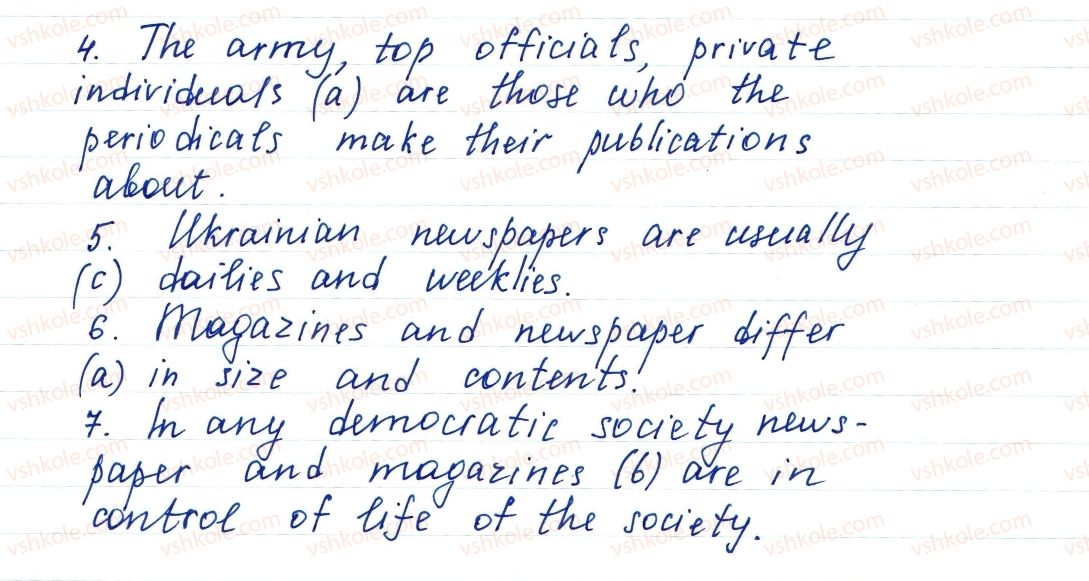 4. The army, top officials, private
individuals (a) are those who the
periodicals make their publications
about.
5. Ukrainian newspapers are usually
(c) dailies and weeklies.
6. Magazines and newspaper differ
(a) in size and contents.
7. In any democratic society news-
paper and magazines (b) are in
control of life of the society.
vshkole.com